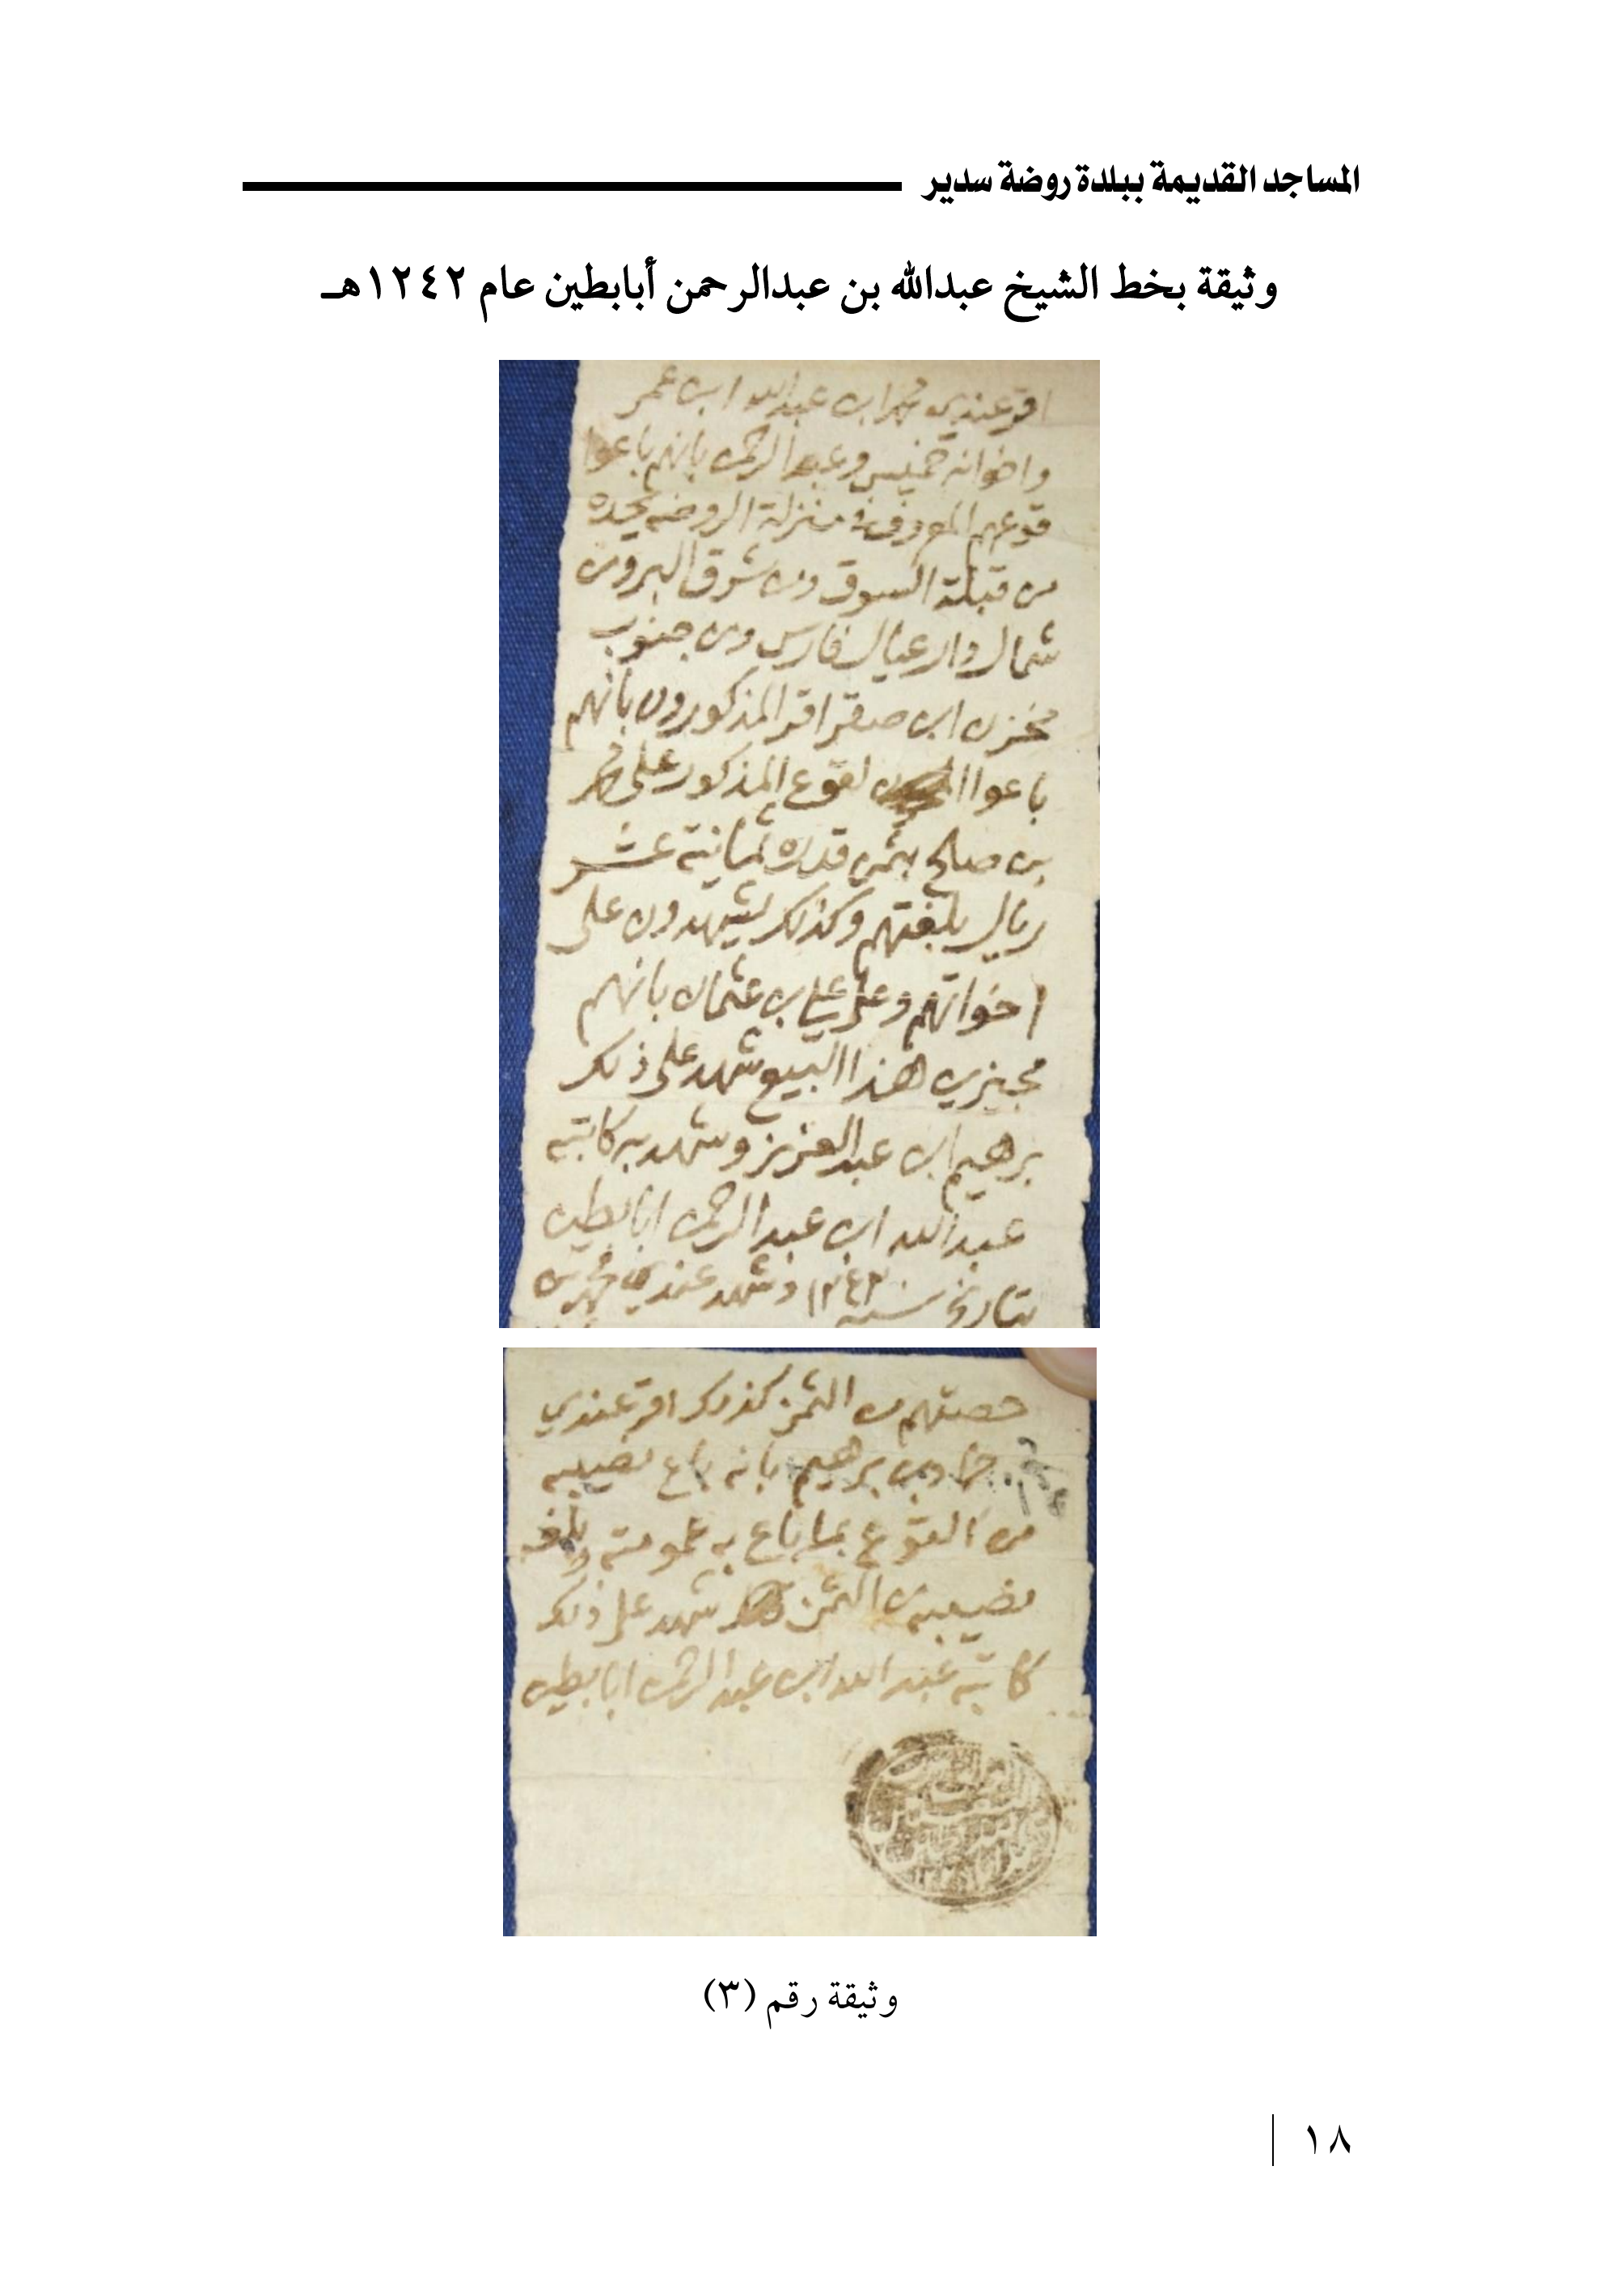 المساجد القديمة ببلدة روضة سدير
وثيقة بخط الشيخ عبدالله بن عبدالرحمن أبابطين عام ١٢٤٢هـ
اقر عندي محمد ابن عبدالله ابن عمر
واخوانه خميس وعبدالرحمن بانهم باعوا
قوعهم المعروف في منزلة الروضه يحده
من قبلة السوق ومن شرق البر ومن
شمال دار عيال فارس ومن جنوب
مخزن ابن صقر اقر المذكورون بانهم
باعوا لقوع المذكور على محمد
بن صالح بثمن قدره ثمانية عشر
ريال بلغتهم وكذلك يشهدون على
اخواتهم وعلى علي بن عثمان بانهم
مجيزين هذا البيع شهد على ذلك
برهيم ابن عبدالعزيز وشهد به كاتبه
عبدالله ابن عبدالرحمن ابابطين
بتاريخ سنة ١٢٤٢ وشهد عندي محمد بن
حصتهم من الثمن كذلك اقر عندي
حماد بن برهيم بانه باع نصيبه
من القوع بما باع به عمومته وبلغه
نصيبه من الثمن شهد على ذلك
كاتبه عبدالله ابن عبدالرحمن ابابطين
وثيقة رقم (٣)
١٨